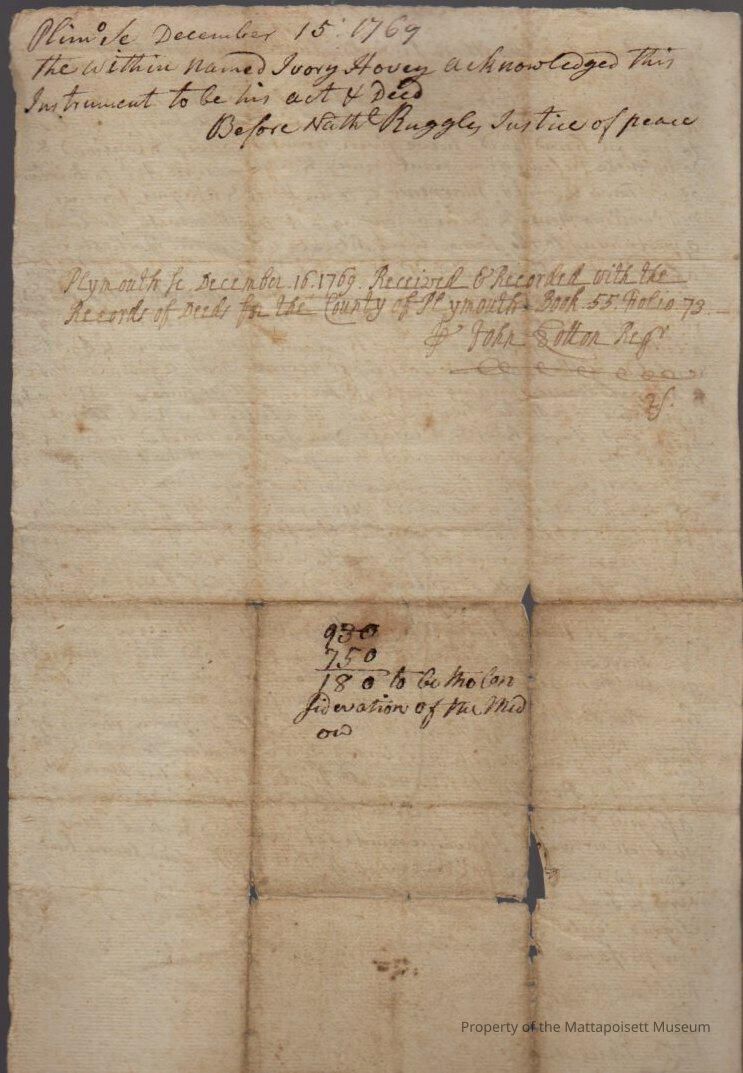 Plimo Sc December 15: 1769
the within named Ivory Hovey acknowledged this
Instrument to be his act & Deed
Before Nathl Ruggles Justice of peace
Plymouth Sc December 16. 1769. Received & Recorded with the
Records of Deeds for the County of Plymouth Book 55. Folio 73.
Pr John Cotton Regr
930
750
180 to be the Con
sideration of the Med
ow
Property of the Mattapoisett Museum